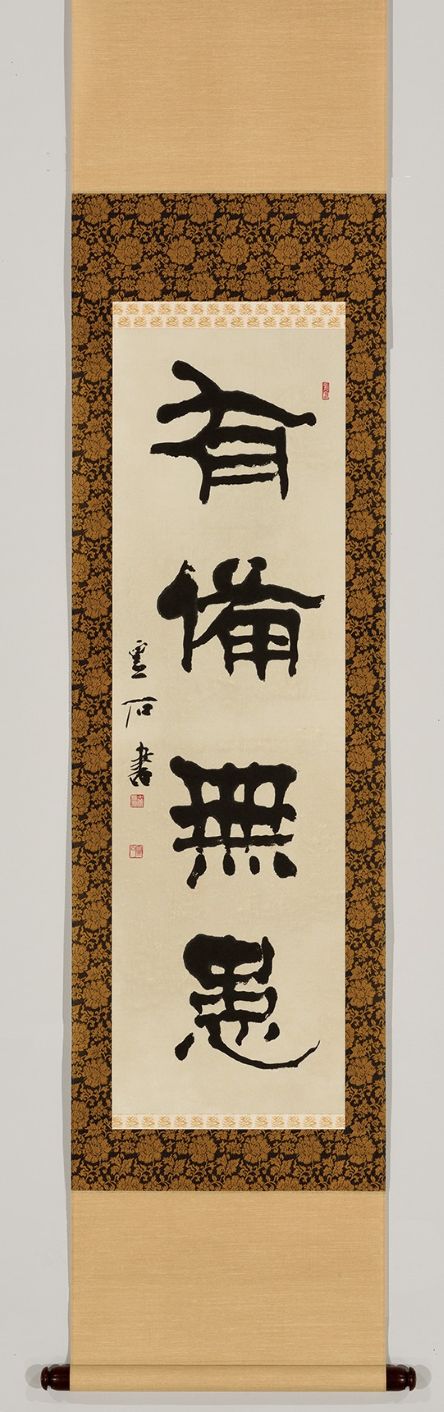 有備無患
雲石書